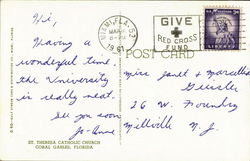 MIAMI, FLA.
MAR
1961
GIVE
RED CROSS
FUND
3¢
LIBERTY
POST CARD
Hi,
Having a
wonderful time.
the University
is really neat.
See you soon
Jo-Anne
Miss Janet &
26 W.
Millville N. J.
ST. THERESA CATHOLIC CHURCH
CORAL GABLES, FLORIDA